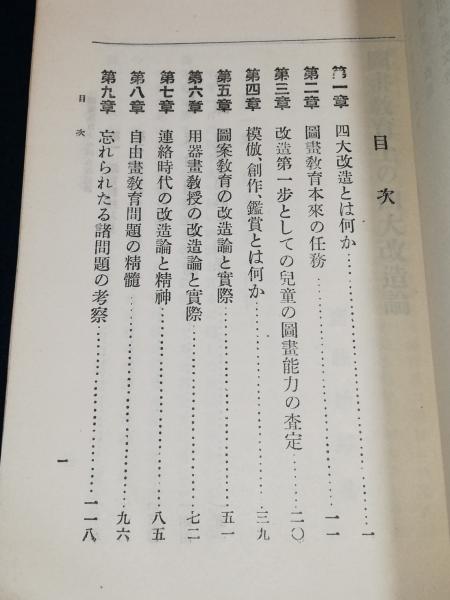 目次
第一章 四大改造とは何か……………一
第二章 圖畫敎育本來の任務……………一一
第三章 改造第一步としての兒童の圖畫能力の査定……………二〇
第四章 模倣、創作、鑑賞とは何か……………三九
第五章 圖案敎育の改造論と實際……………五一
第六章 用器畫敎授の改造論と實際……………七二
第七章 連絡時代の改造論と精神……………八五
第八章 自由畫敎育問題の精髓……………九六
第九章 忘れられたる諸問題の考察……………一一八
目次
一